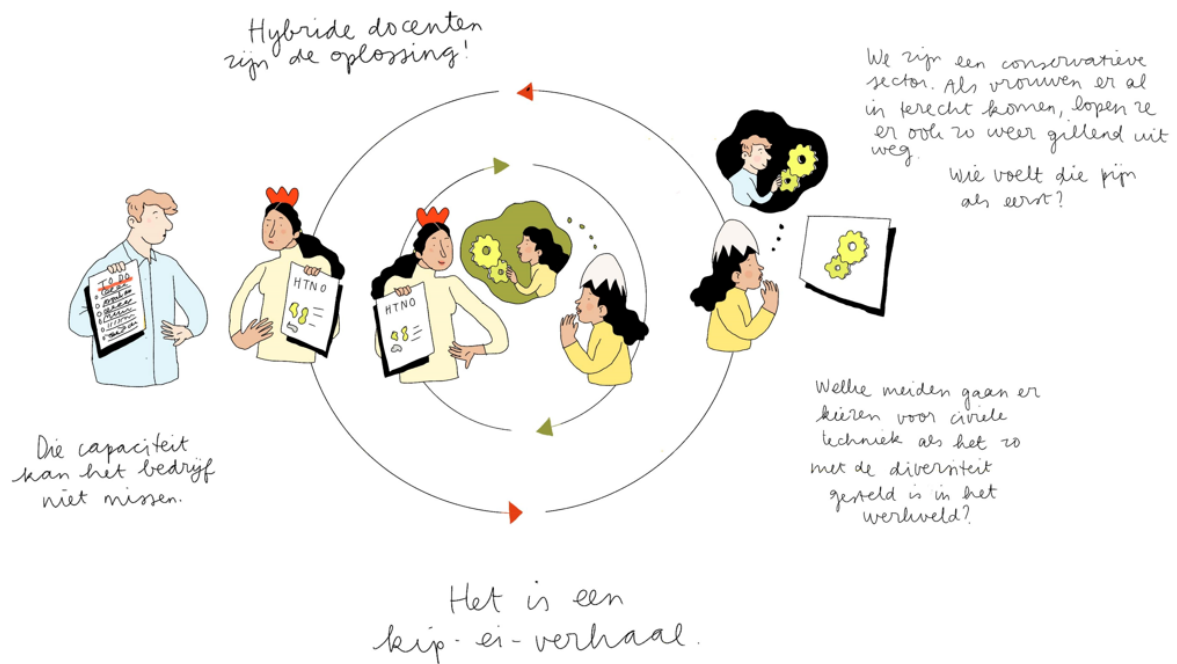 Hybride docenten
zijn de oplossing!
We zijn een conservatieve
sector. Als vrouwen er al
in terecht komen, lopen ze
er ook zo weer gillend uit
weg.
Wie voelt die pijn
als eerst?
TO DO
HTNO
HTNO
Die capaciteit
kan het bedrijf
niet missen.
Welke meiden gaan er
kiezen voor civiele
techniek als het zo
met de diversiteit
gesteld is in het
werkveld?
Het is een
kip-ei-verhaal.